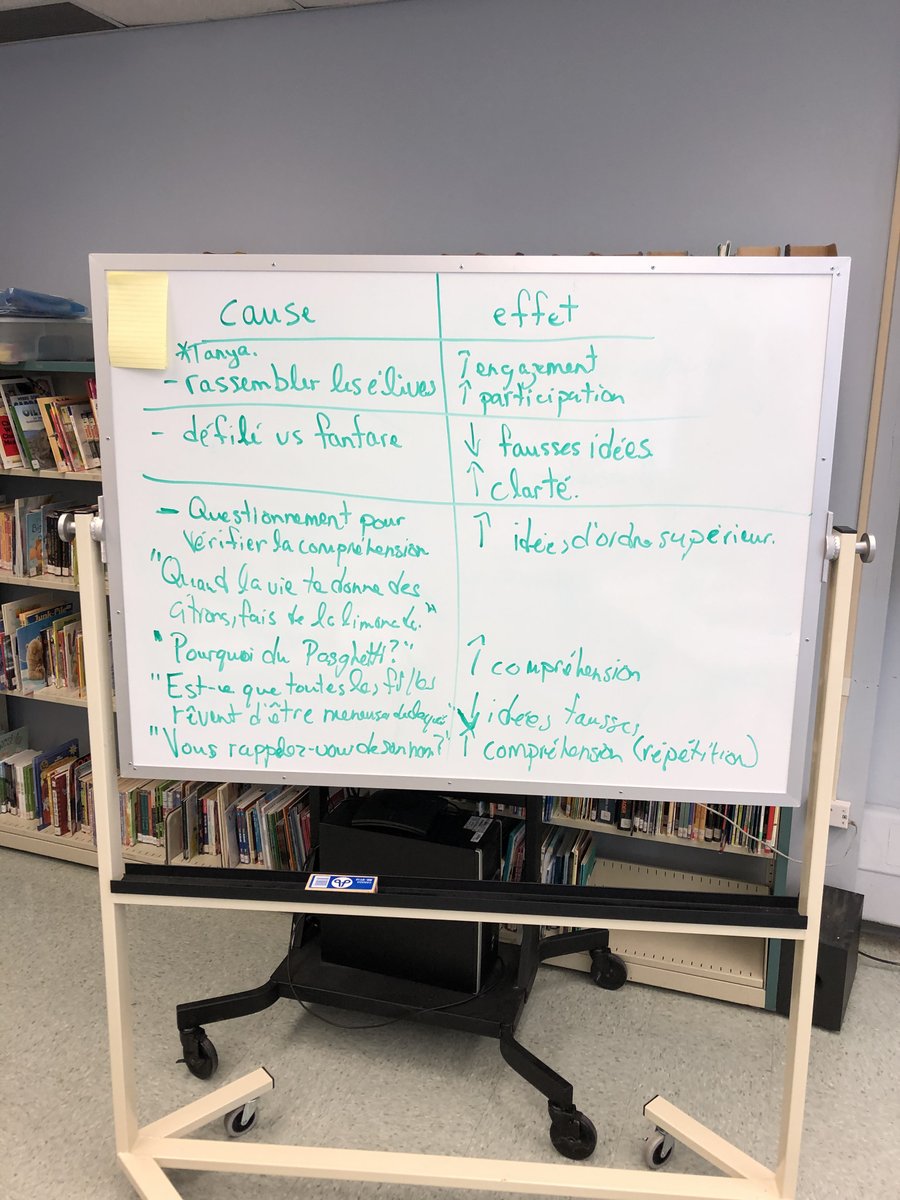 cause
effet
*Tanya.
- rassembler les élives
↑ engagement
↑ participation
- défilé vs fanfare
↓ fausses idées
↑ clarté.
- Questionnement pour
vérifier la compréhension
↑ idées d'ordre supérieur.
"Quand la vie te donne des
citrons, fais de la limonade."
"Pourquoi du Pasghetti?"
↑ compréhension
"Est-ce que toutes les filles
rêvent d'être meneuse de claque"
↓ idées fausses
"Vous rappelez-vous de son nom?"
↑ compréhension (répétition)
Junk-Pile